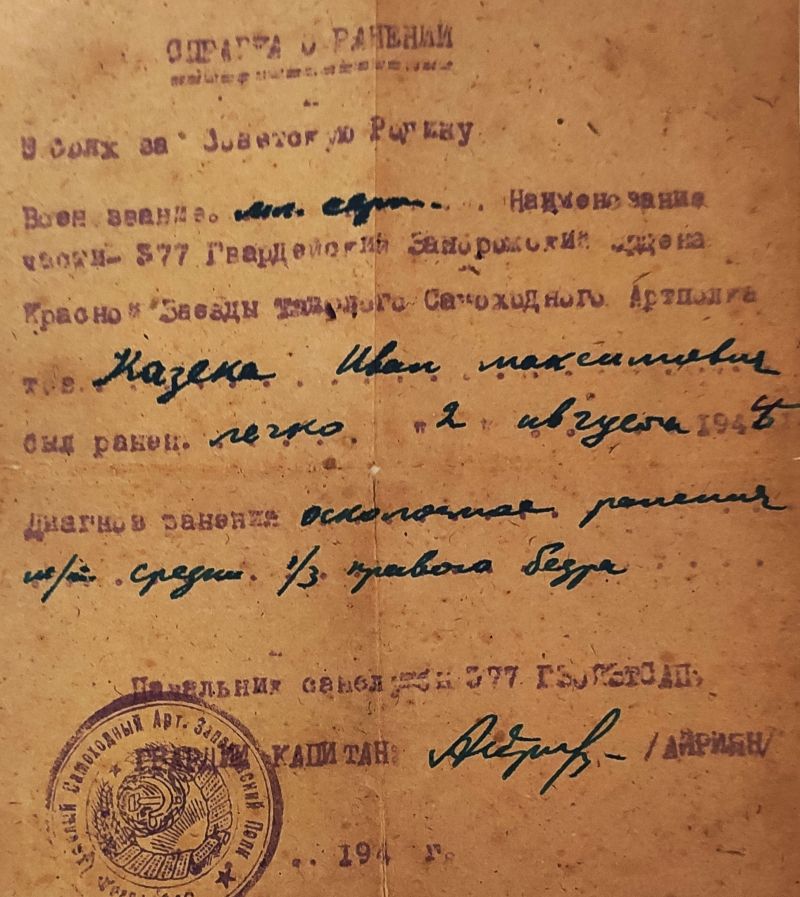 СПРАВКА О РАНЕНИИ
В боях за Советскую Родину
Воен звание. мл. серж. Наименование
части- 377 Гвардейский Запорожский ордена
Красной Звезды тяжелого Самоходного Артполка
тов. Казека Иван Максимович
был ранен. легко. "2" августа 1944
Диагноз ранения осколочное ранения
м/т. средн. 1/3 правого бедра
Начальник санслужбы 377
ГВАРДИИ КАПИТАН /АЙРИЯН/
Самоходный Арт. Полк
.. 194 г.